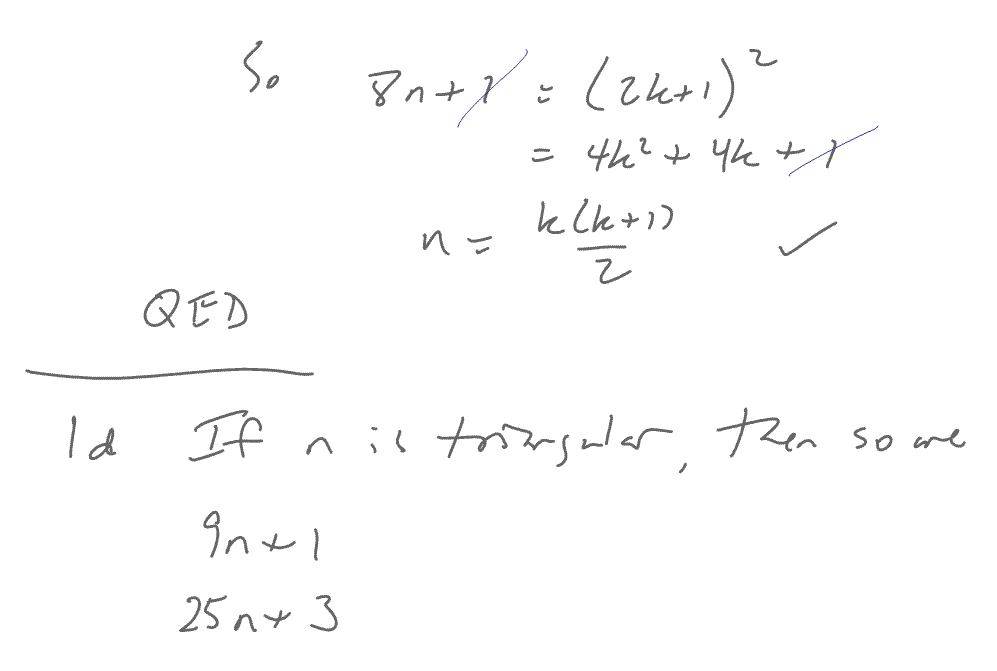 So 8n+1 = (2k+1)²
= 4k² + 4k + 1
n = k(k+1)/2 ✓
QED
1d If n is triangular, then so are
9n+1
25n+3